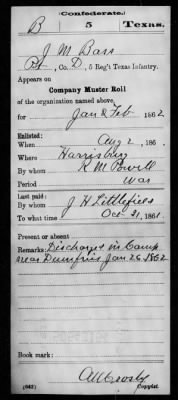 Confederate.
B 5 Texas.
J M Bass
Pvt, Co. D, 5 Reg't Texas Infantry.
Appears on
Company Muster Roll
of the organization named above,
for Jan & Feb, 1862.
Enlisted:
When Aug 2, 186 .
Where Harrisburg
By whom R M Powell
Period War
Last paid:
By whom J H Littlefield
To what time Oct 31, 1861.
Present or absent
Remarks: Discharged in Camp
near Dumfries Jan 26 1862
Book mark:
(642) Copyist.